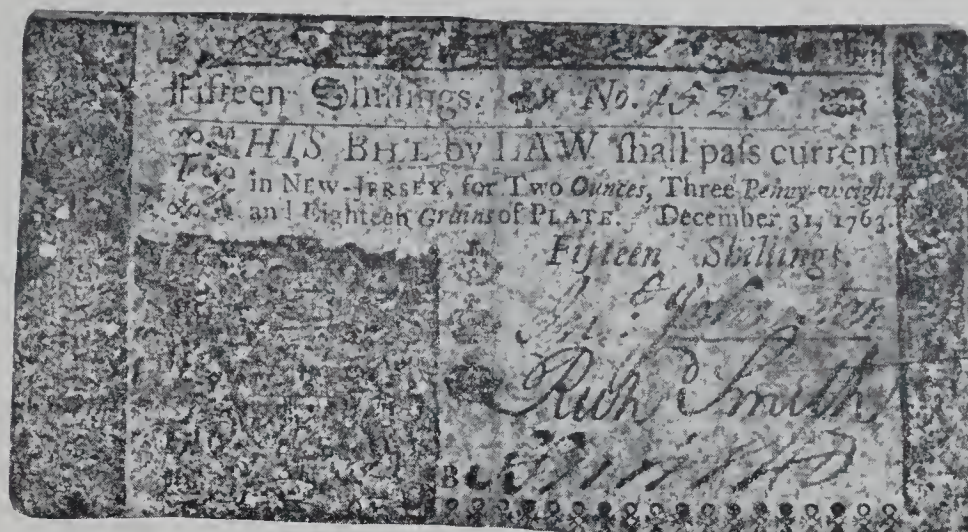 Fifteen Shillings. No. 4525
THIS BILL by LAW shall pass current
in NEW-JERSEY, for Two Ounces, Three Penny-weight
and Eighteen Grains of PLATE. December 31, 1763.
Fifteen Shillings.
Johnston
Richd Smith
B